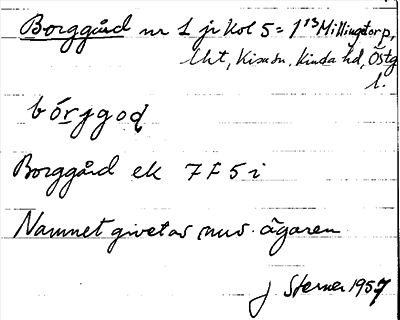 Borggård nr 1 jr kol 5 = 1¹³ Millingstorp,
lht, Kisa sn, Kinda hd, Östg
l.
bórjgoḍ
Borggård ek 7F5i
Namnet givet av nuv. ägaren
J. Sterner 1957